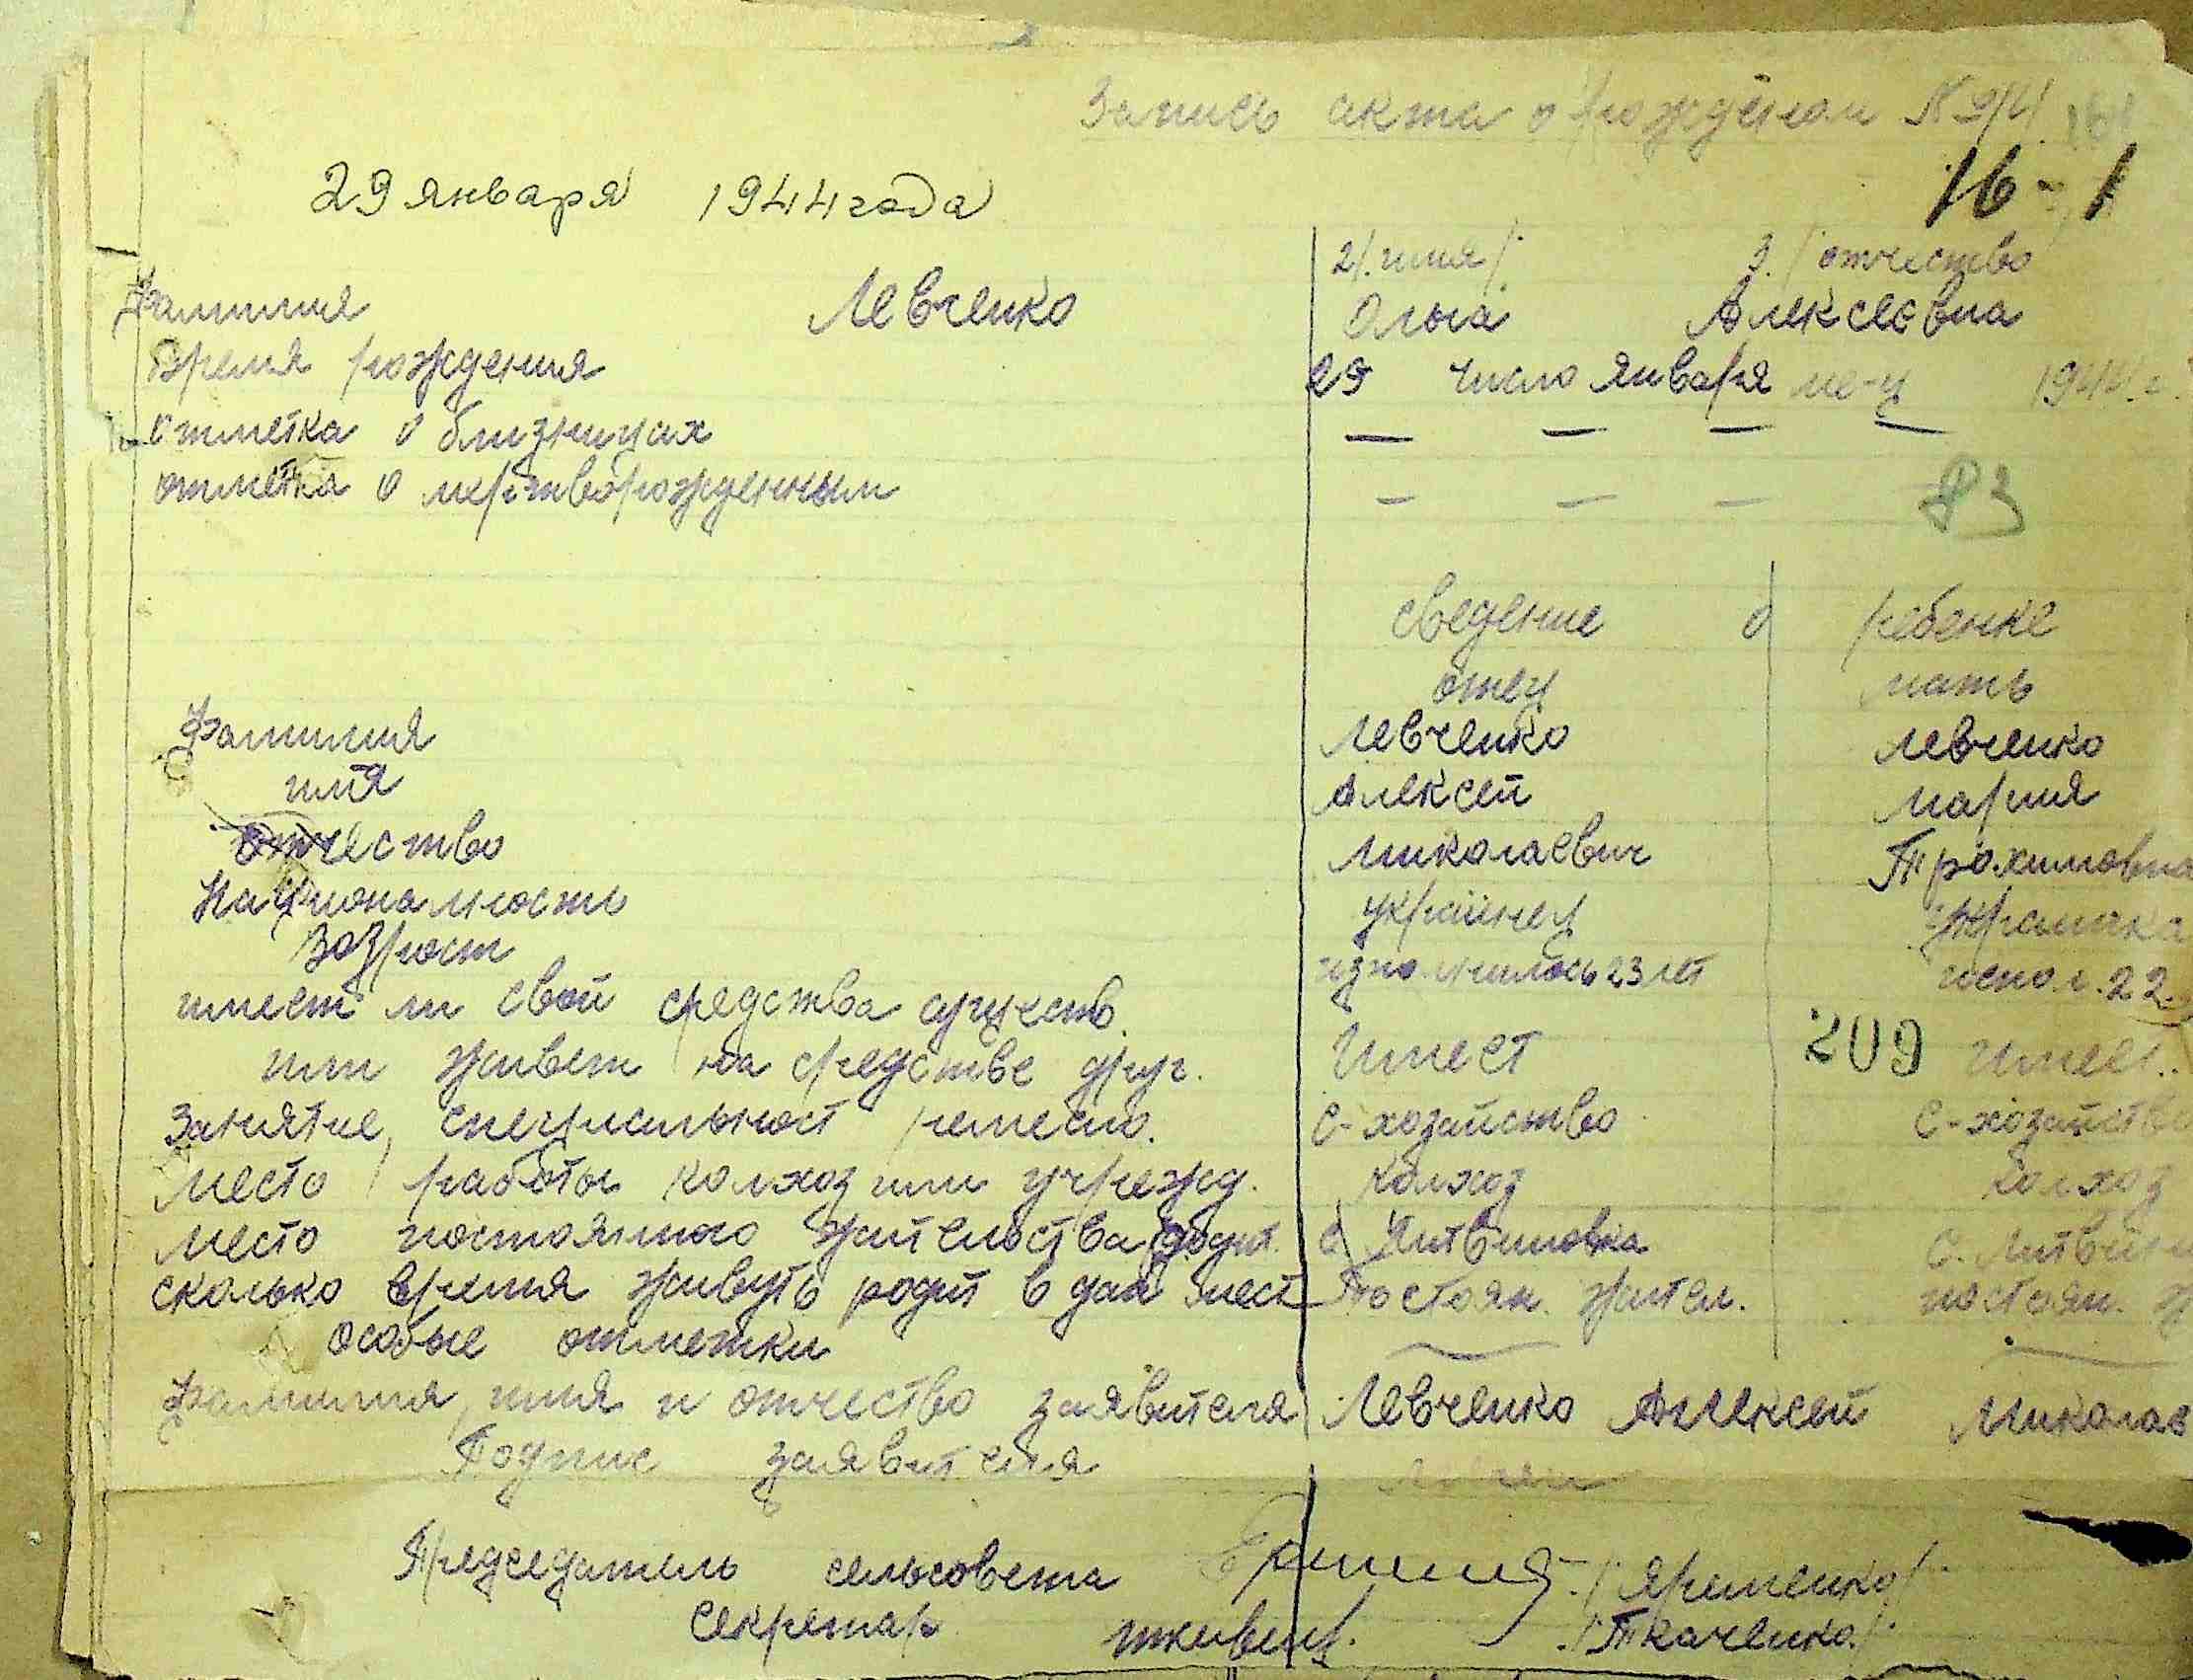 Запись акта о рождении №
16-1
29 января 1944 года
2/. имя/. 3. /отчество/
фамилия Левченко Ольга Алексеевна
Время рождения 29 число января ме-ц 194 г.
отметка о близнецах — — — —
отметка о мертворожденным — — —
83
сведение о ребенке
отец мать
фамилия Левченко Левченко
имя Алексей Мария
отчество Миколаевич Трохимовна
Национальность украинец украинка
Возраст исполнилось 23 лет испол. 22
имеет ли свои средства сущеcтв.
или живет на средстве друг. Имеет 209 Имеет.
Занятие, специальност ремесло. С-хозайство С-хозайство
Место работы колхоз или учрежд. Колхоз колхоз
место постоянного жительства родит. С. Литвиновка С. Литвин
сколько время живуть родит в дан мест Постоян. жител. постоян. ж
особые отметки
фамилия, имя и отчество заявителя Левченко Алексей Миколае
Подпис заявителя
Председатель сельсовета /Яременко/
Секретар /Ткаченко/